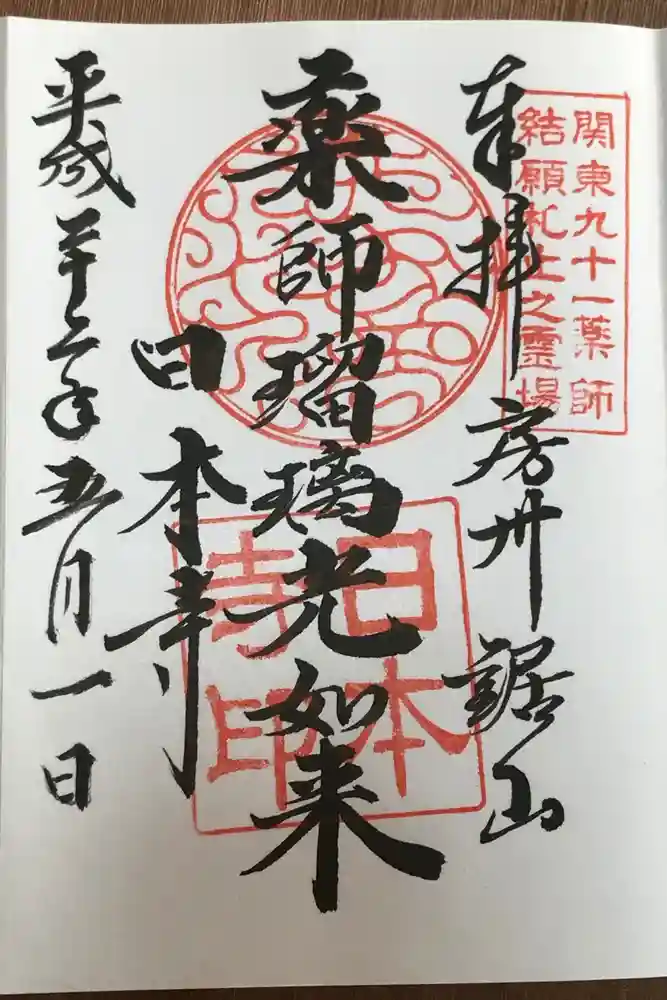 関東九十一薬師
結願札止之霊場
奉拝 房州 鋸山
薬師瑠璃光如来
日本寺
平成三十年五月一日
日本
寺印